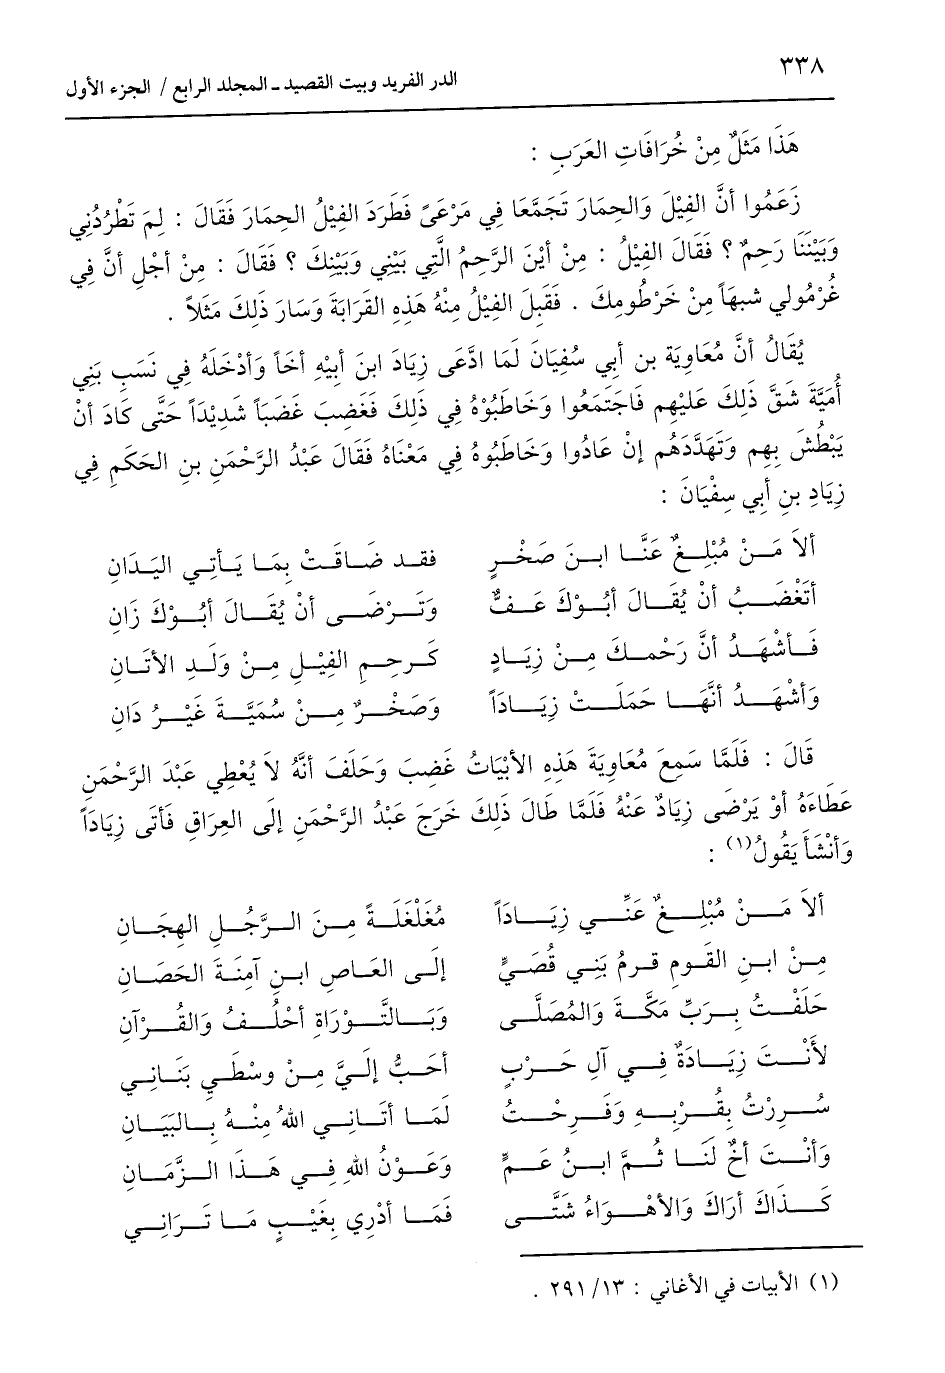 ٣٣٨
الدر الفريد وبيت القصيد ـ المجلد الرابع / الجزء الأول
هَذَا مَثَلٌ مِنْ خُرَافَاتِ العَرَبِ :
زَعَمُوا أنَّ الفِيْلَ وَالحِمَارَ تَجَمَّعَا فِي مَرْعَىً فَطَرَدَ الفِيْلُ الحِمَارَ فَقَالَ : لِمَ تَطْرُدُنِي
وَبَيْنَنَا رَحِمٌ ؟ فَقَالَ الفِيْلُ : مِنْ أيْنَ الرَّحِمُ الَّتِي بَيْنِي وَبَيْنِكَ ؟ فَقَالَ : مِنْ أجْلِ أنَّ فِي
غُرْمُولِي شبهَاً مِنْ خَرْطُومِكَ . فَقَبِلَ الفِيْلُ مِنْهُ هَذِهِ القَرَابَةَ وَسَارَ ذَلِكَ مَثَلاً .
يُقَالُ أنَّ مُعَاوِيَة بن أبي سُفيَانَ لَمَا ادَّعَى زِيَادَ ابنَ أبِيْهِ أخَاً وَأدْخَلَهُ فِي نَسَبِ بَنِي
أُمَيَّةَ شَقَّ ذَلِكَ عَلَيْهِم فَاجتَمَعُوا وَخَاطَبُوْهُ فِي ذَلِكَ فَغَضِبَ غَضَبَاً شَدِيْدَاً حَتَّى كَادَ أنْ
يَبْطُشَ بِهِم وَتَهَدَّدَهُم إنْ عَادُوا وَخَاطَبُوهُ فِي مَعْنَاهُ فَقَالَ عَبْدُ الرَّحْمَنِ بنِ الحَكَمِ فِي
زِيَادِ بنِ أبِي سِفْيَانَ :
ألاَ مَنْ مُبْلِغٌ عَنَّا ابنَ صَخْرٍ فقد ضَاقَتْ بِمَا يَأتِي اليَدَانِ
أتَغْضَبُ أنْ يُقَالَ أبُوْكَ عَفٌّ وَتَرْضَى أنْ يُقَالَ أبُوْكَ زَانِ
فَأشْهَدُ أنَّ رَحْمكَ مِنْ زِيَادٍ كَرحِمِ الفِيْلِ مِنْ وَلَدِ الأتَانِ
وَأشْهَدُ أنَّهَا حَمَلَتْ زِيَادَاً وَصَخْرٌ مِنْ سُمَيَّةَ غَيْرُ دَانِ
قَالَ : فَلَمَّا سَمِعَ مُعَاوِيَةَ هَذِهِ الأبْيَاتُ غَضِبَ وَحَلَفَ أنَّهُ لاَ يُعْطِي عَبْدَ الرَّحْمَنِ
عَطَاءَهُ أوْ يَرْضَى زِيَادٌ عَنْهُ فَلَمَّا طَالَ ذَلِكَ خَرَجَ عَبْدُ الرَّحْمَنِ إلَى العِرَاقِ فَأتَى زِيَادَاً
وَأنْشَأ يَقُولُ(١) :
ألاَ مَنْ مُبْلِغٌ عَنِّي زِيَادَاً مُغَلْغَلَةً مِنَ الرَّجُلِ الهِجَانِ
مِنْ ابنِ القَومِ قرمُ بَنِي قُصَيٍّ إلَى العَاصِ ابنِ آمِنَةَ الحَصَانِ
حَلَفْتُ بِرَبِّ مَكَّةَ وَالمُصَلَّى وَبَالتَّوْرَاةِ أحْلُفُ وَالقُرْآنِ
لأَنْتَ زِيَادَةٌ فِي آلِ حَرْبٍ أحَبُّ إلَيَّ مِنْ وسْطَي بَنَانِي
سُرِرْتُ بِقُرْبِهِ وَفَرِحْتُ لَمَا أتَانِي اللهُ مِنْهُ بِالبَيَانِ
وَأنْتَ أخٌ لَنَا ثُمَّ ابنُ عَمٍّ وَعَوْنُ اللهِ فِي هَذَا الزَّمَانِ
كَذَاكَ أرَاكَ وَالأهْوَاءُ شَتَّى فَمَا أدْرِي بِغَيْبٍ مَا تَرَانِي
(١) الأبيات في الأغاني : ١٣/ ٢٩١ .